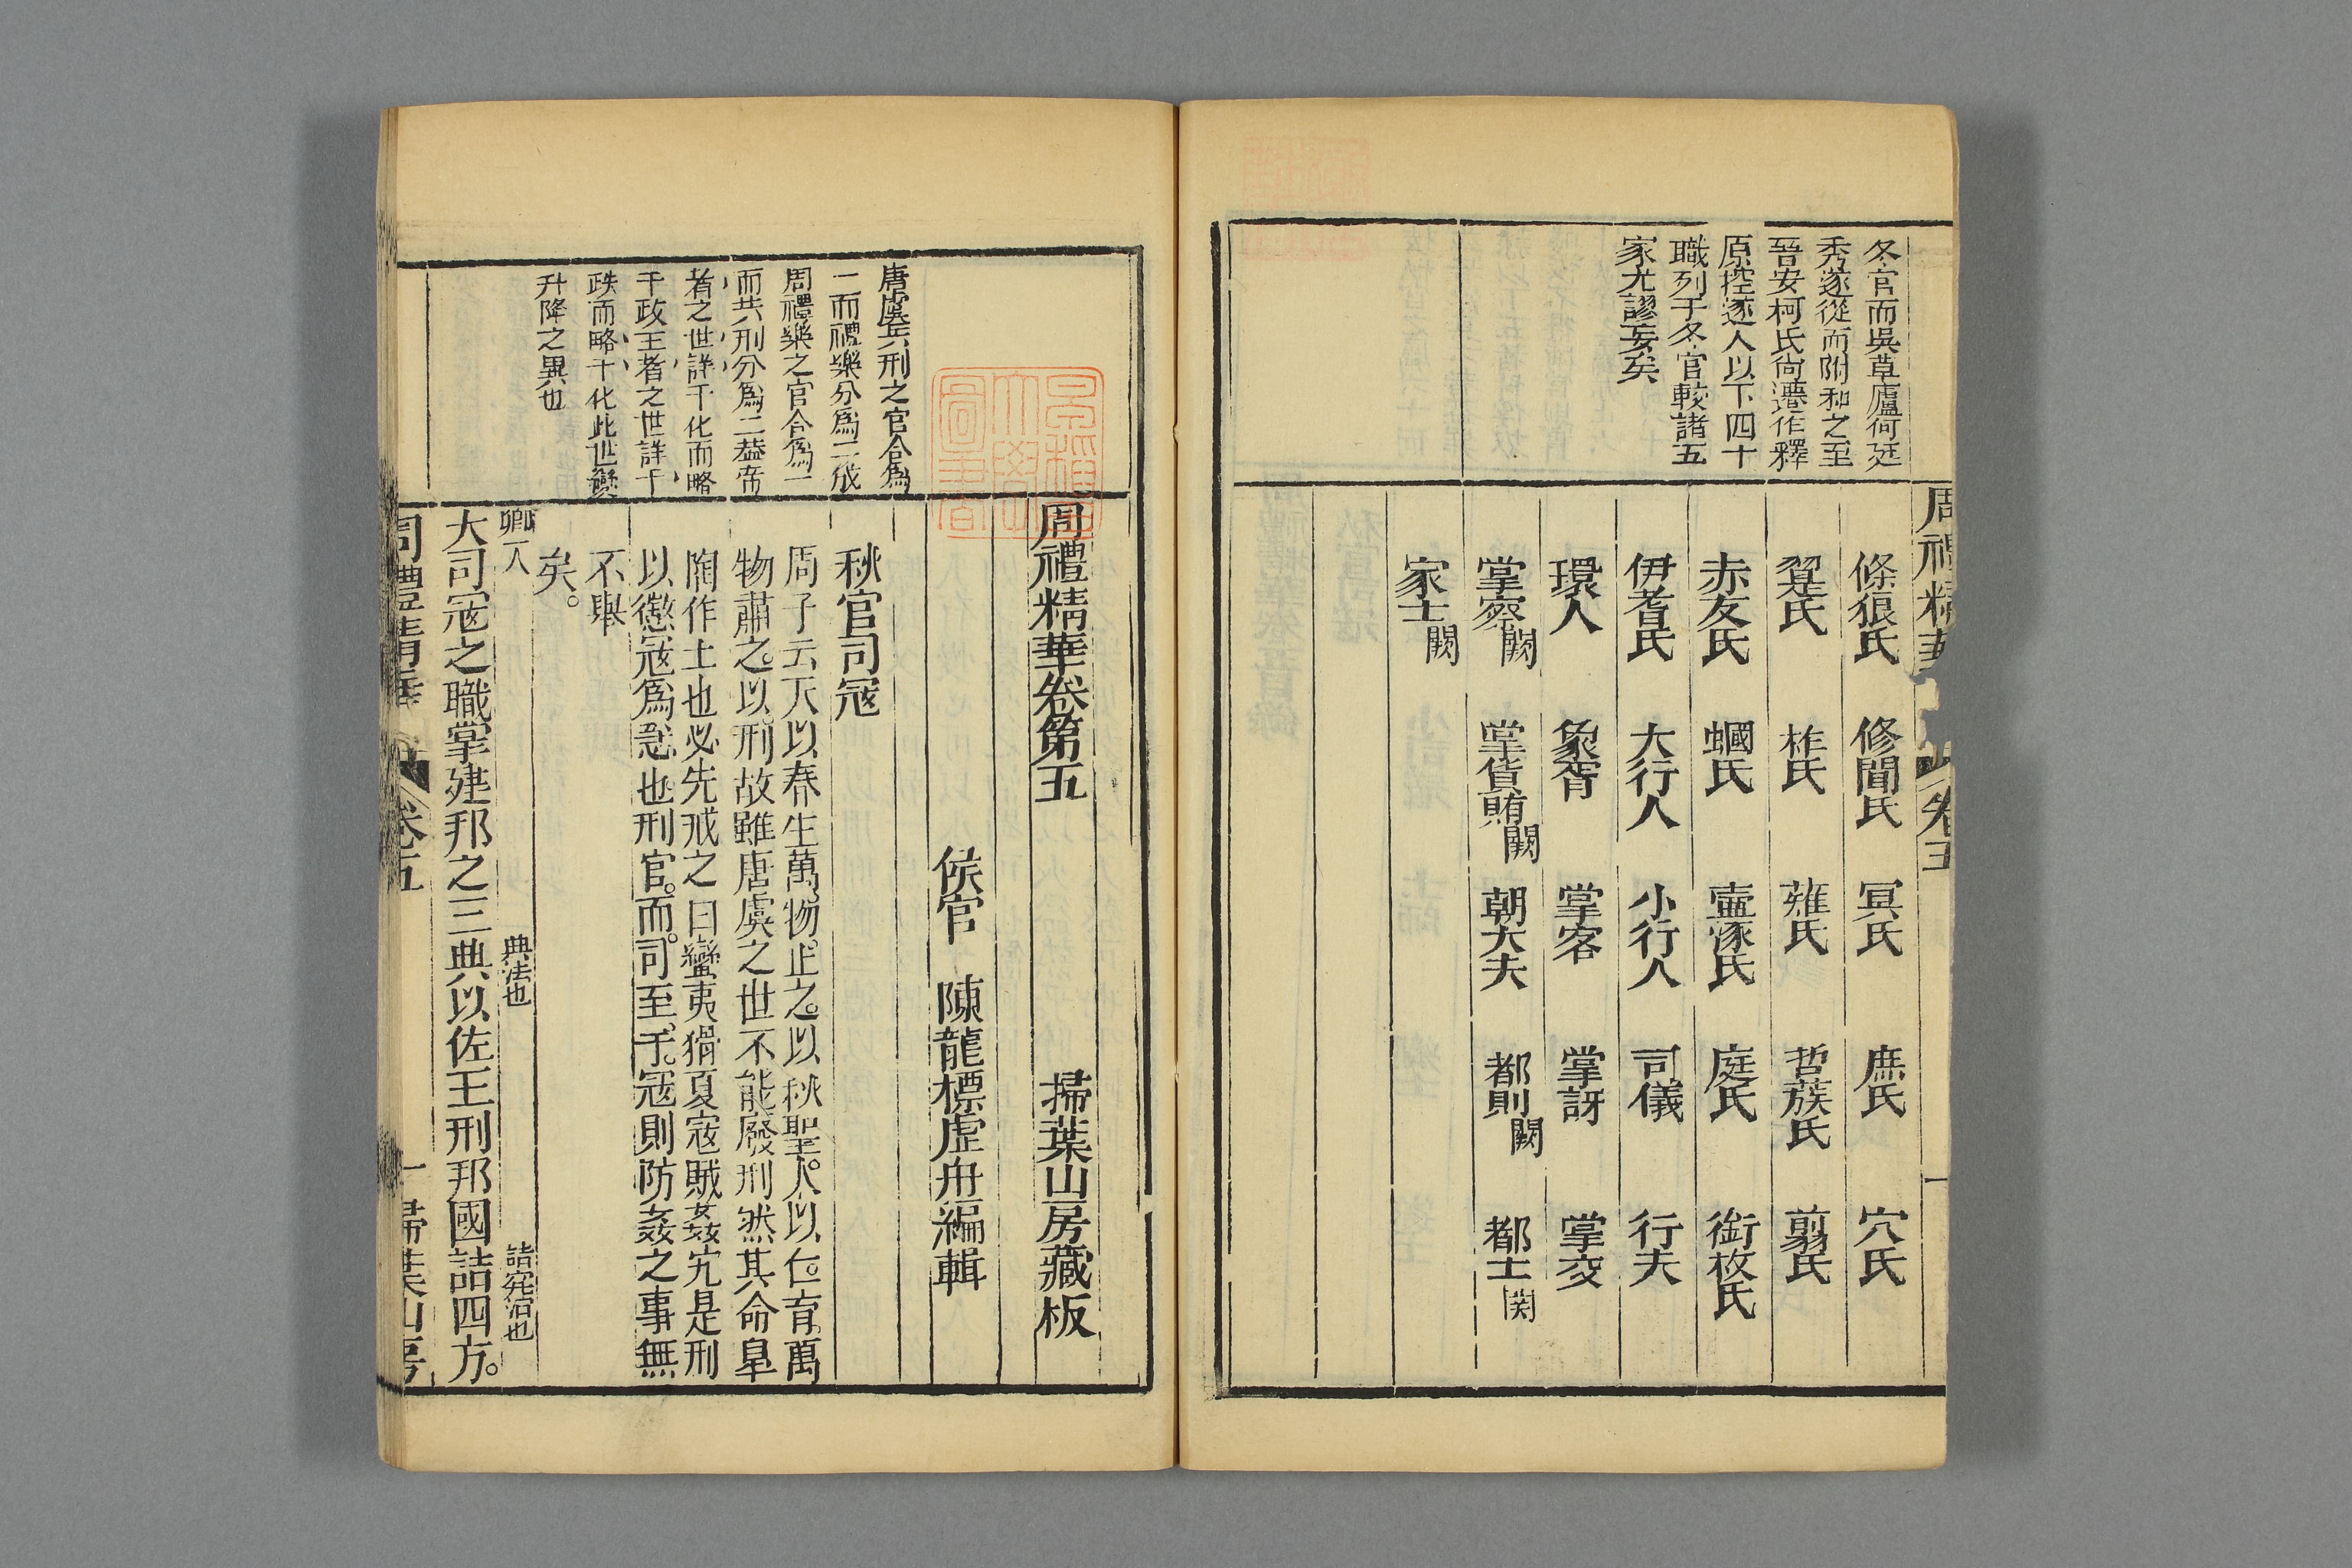 冬官而吳草廬何廷
秀遂從而附和之至
晉安柯氏尚遷作釋
原控遂人以下四十
職列于冬官較諸五
家尤謬妄矣
周禮精華
卷五
一
條狼氏 修閭氏 冥氏 庶氏 穴氏
翨氏 柞氏 薙氏 哲蔟氏 翦氏
赤犮氏 蟈氏 壺涿氏 庭氏 銜枚氏
伊耆氏 大行人 小行人 司儀 行夫
環人 象胥 掌客 掌訝 掌交
掌察闕 掌貨賄闕 朝大夫 都則闕 都士闕
家士闕
唐虞兵刑之官合爲
一而禮樂分爲二成
周禮樂之官合爲一
而兵刑分爲二葢帝
者之世詳于化而略
于政王者之世詳于
政而略于化此世變
升降之異也
周禮精華卷第五 掃葉山房藏板
侯官 陳龍標虛舟編輯
秋官司宼
周子云天以春生萬物止之以秋聖人以仁育萬
物肅之以刑故雖唐虞之世不能廢刑然其命臯
陶作士也必先戒之曰蠻夷猾夏寇賊姦宄是刑
以懲宼爲急也刑官而司至于宼則防姦之事無
不舉
矣。
卿一人 典法也 詰窮治也
大司宼之職掌建邦之三典以佐王刑邦國詰四方。
周禮精華 卷五 一 掃葉山房